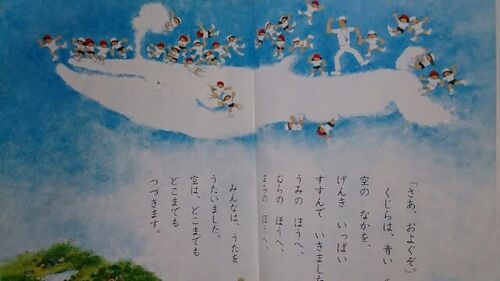 「さあ、およぐぞ。」
くじらは、青い
空の なかを、
げんき いっぱい
すすんで いきました
うみの ほうへ、
むらの ほうへ、
まちの ほうへ。
みんなは、うたを
うたいました。
空は、どこまでも
どこまでも
つづきます。